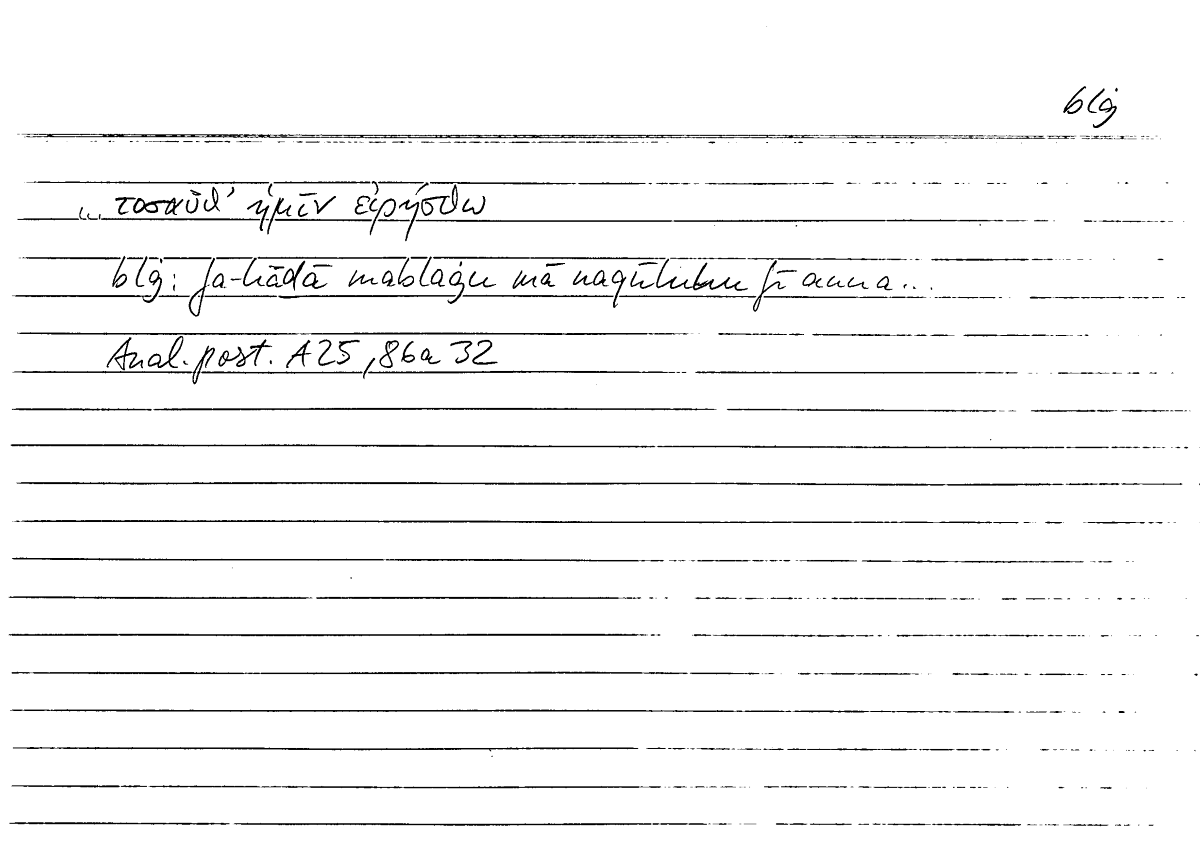 blġ
„... τοσαῦθ’ ἡμῖν εἰρήσθω
blġ: fa-hāḏā mablaġu mā naqūluhu fī anna...
Anal. post. A 25, 86a 32